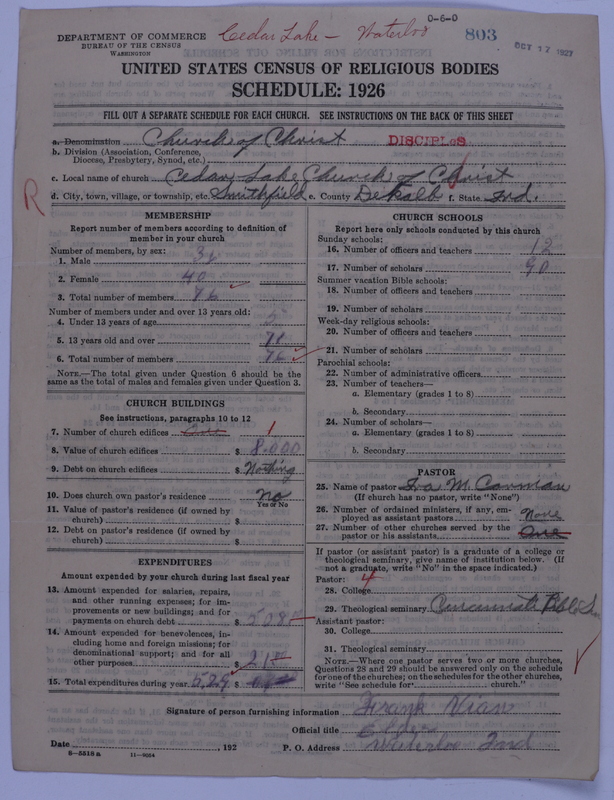 D-6-D
DEPARTMENT OF COMMERCE
BUREAU OF THE CENSUS
WASHINGTON
Cedar Lake - Waterloo
803
OCT 17 1927
UNITED STATES CENSUS OF RELIGIOUS BODIES
SCHEDULE: 1926
FILL OUT A SEPARATE SCHEDULE FOR EACH CHURCH. SEE INSTRUCTIONS ON THE BACK OF THIS SHEET
a. Denomination Church of Christ DISCIPLES
b. Division (Association, Conference, Diocese, Presbytery, Synod, etc.)
c. Local name of church Cedar Lake Church of Christ
d. City, town, village, or township, etc. Smithfield e. County Dekalb f. State Ind.
R
MEMBERSHIP
Report number of members according to definition of member in your church
Number of members, by sex:
1. Male
2. Female 40
3. Total number of members 76
Number of members under and over 13 years old:
4. Under 13 years of age
5. 13 years old and over
6. Total number of members 76
NOTE.—The total given under Question 6 should be same as the total of males and females given under Question 3.
CHURCH BUILDINGS
See instructions, paragraphs 10 to 12
7. Number of church edifices One 1
8. Value of church edifices $ 8.000
9. Debt on church edifices $ Nothing
10. Does church own pastor's residence no
Yes or No
11. Value of pastor's residence (if owned by church) $
12. Debt on pastor's residence (if owned by church) $
EXPENDITURES
Amount expended by your church during last fiscal year
13. Amount expended for salaries, repairs, and other running expenses; for improvements or new buildings; and for payments on church debt $ 508
14. Amount expended for benevolences, including home and foreign missions; for denominational support; and for all other purposes $ 21
15. Total expenditures during year 529 $
CHURCH SCHOOLS
Report here only schools conducted by this church
Sunday schools:
16. Number of officers and teachers 12
17. Number of scholars 90
Summer vacation Bible schools:
18. Number of officers and teachers
19. Number of scholars
Week-day religious schools:
20. Number of officers and teachers
21. Number of scholars
Parochial schools:
22. Number of administrative officers
23. Number of teachers—
a. Elementary (grades 1 to 8)
b. Secondary
24. Number of scholars—
a. Elementary (grades 1 to 8)
b. Secondary
PASTOR
25. Name of pastor Ira M.
(If church has no pastor, write "None")
26. Number of ordained ministers, if any, employed as assistant pastors None
27. Number of other churches served by the pastor or his assistants One
If pastor (or assistant pastor) is a graduate of a college or theological seminary, give name of institution below. (If not a graduate, write "No" in the space indicated.)
Pastor: 4
28. College
29. Theological seminary Cincinnati Bible Sem
Assistant pastor:
30. College
31. Theological seminary
NOTE.—Where one pastor serves two or more churches, Questions 28 and 29 should be answered only on the schedule for one of the churches; on the schedules for the other churches, write "See schedule for church."
Signature of person furnishing information Frank
Official title Elder
Date , 192 P. O. Address Waterloo Ind
8-5518 a 11-9054